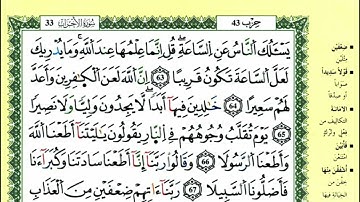 33 سُورَةُ الأَحْزَابِ
حِزْب 43
يَسْـَٔلُكَ ٱلنَّاسُ عَنِ ٱلسَّاعَةِ قُلْ إِنَّمَا عِلْمُهَا عِندَ ٱللَّهِ وَمَا يُدْرِيكَ
لَعَلَّ ٱلسَّاعَةَ تَكُونُ قَرِيبًا 63 إِنَّ ٱللَّهَ لَعَنَ ٱلْكَٰفِرِينَ وَأَعَدَّ
لَهُمْ سَعِيرًا 64 خَٰلِدِينَ فِيهَا أَبَدًا لَّا يَجِدُونَ وَلِيًّا وَلَا نَصِيرًا
65 يَوْمَ تُقَلَّبُ وُجُوهُهُمْ فِي ٱلنَّارِ يَقُولُونَ يَٰلَيْتَنَا أَطَعْنَا ٱللَّهَ
وَأَطَعْنَا ٱلرَّسُولَا 66 وَقَالُوا۟ رَبَّنَا إِنَّا أَطَعْنَا سَادَتَنَا وَكُبَرَآءَنَا
فَأَضَلُّونَا ٱلسَّبِيلَا 67 رَبَّنَا ءَاتِهِمْ ضِعْفَيْنِ مِنَ ٱلْعَذَابِ
ضِعْفَيْنِ
مِثْلَيْنِ
قَوْلاً سَدِيداً
صِدْقاً
الأمانة
التكاليف من
فَأَبَيْنَ
امْتَنَعْنَ
أَشْفَقْنَ مِنْهَا